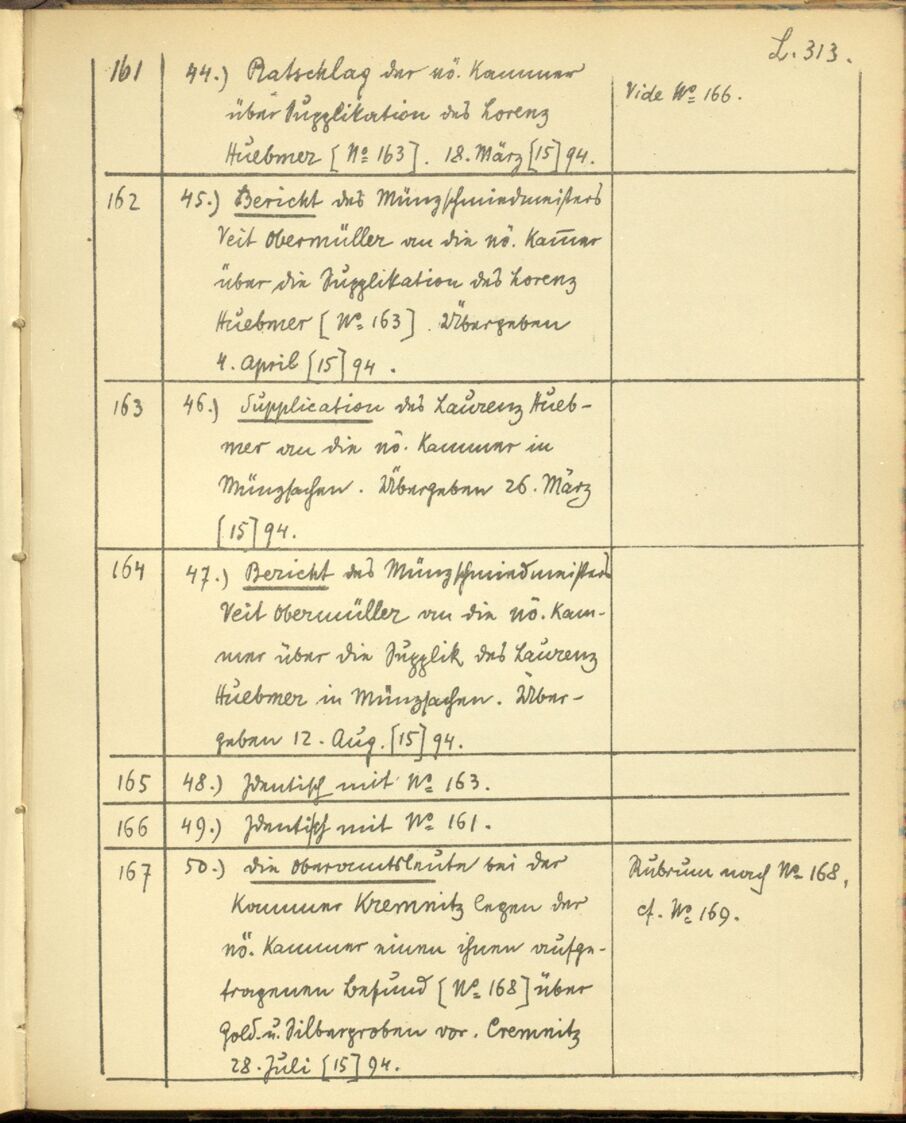 L. 313.
161 44.) Ratschlag der nö. Kammer
über Supplikation des Lorenz
Huebmer [№ 163]. 18. März [15]94.
Vide № 166.
162 45.) Bericht des Münzschmiedmeisters
Veit Obermüller an die nö. Kam̅er
über die Supplikation des Lorenz
Huebmer [№ 163]. Übergeben
4. April [15]94.
163 46.) Supplication des Laurenz Hueb-
mer an die nö. Kammer in
Münzsachen. Übergeben 26. März
[15]94.
164 47.) Bericht des Münzschmiedmeisters
Veit Obermüller an die nö. Kam-
mer über die Supplik des Laurenz
Huebmer in Münzsachen. Über-
geben 12. Aug. [15]94.
165 48.) Identisch mit № 163.
166 49.) Identisch mit № 161.
167 50.) Die Oberamtsleute bei der
Kammer Kremnitz legen der
nö. Kammer einen ihnen aufge-
tragenen Befund [№ 168] über
Gold- u. Silberproben vor. Cremnitz
28. Juli [15]94.
Rubrum nach № 168,
cf. № 169.